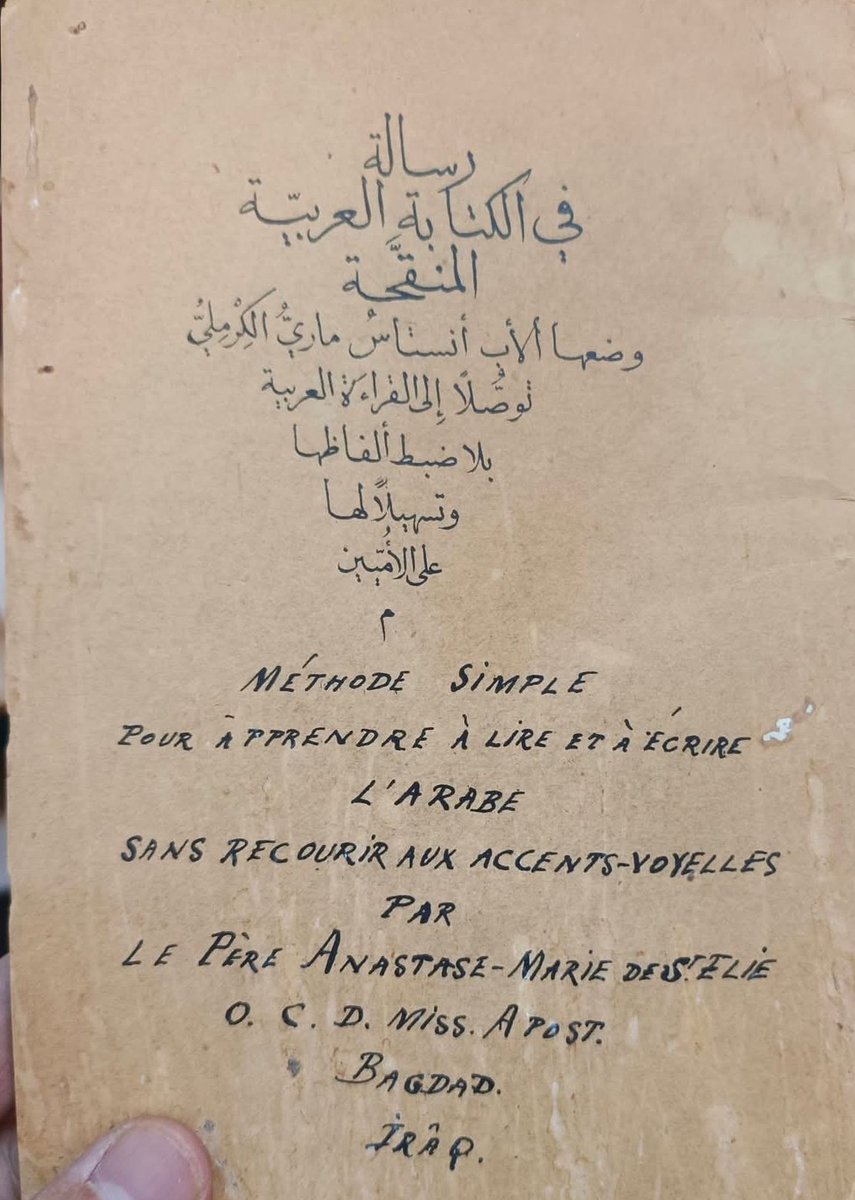 رسالة
في الكتابة العربيّة
المنقَّحة
وضعها ألأب أنستاسُ ماريُّ الكِرْمِليُّ
توصُّلاً إلى القراءة العربية
بلا ضبط ألفاظها
وتسهيلاً لها
على الأُمّيّين
م
MÉTHODE SIMPLE
POUR APPRENDRE À LIRE ET À ÉCRIRE
L'ARABE
SANS RECOURIR AUX ACCENTS-VOYELLES
PAR
LE PÈRE ANASTASE-MARIE DE St. ELIE
O. C. D. MISS. APOST.
BAGDAD.
IRÂQ.